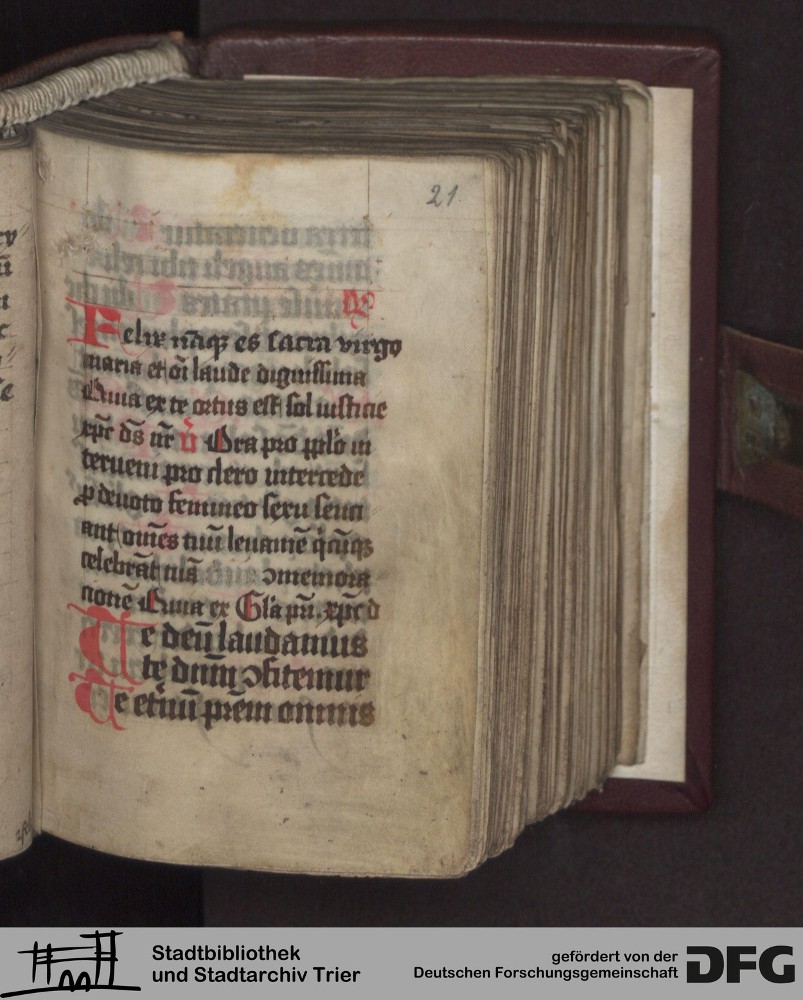 21
R
Felix nāqꝫ es sacra virgo
maria et oī laude dignissima
Quia ex te ortus est sol iusticie
xp̄c ds̄ nr̄ v̄ Ora pro pplo in
terueni pro clero intercede
ꝓ deuoto femineo sexu senci
ant om̄es tuū leuamē q̄cūqꝫ
celebrāt tuā ↄmemora
nonē Quia ex Gl̄a pr̄i. xp̄c d
Te deū laudamus
te dnm̄ ↄfitemur
Te etnū prēm omnis
Stadtbibliothek
und Stadtarchiv Trier
gefördert von der
Deutschen Forschungsgemeinschaft
DFG